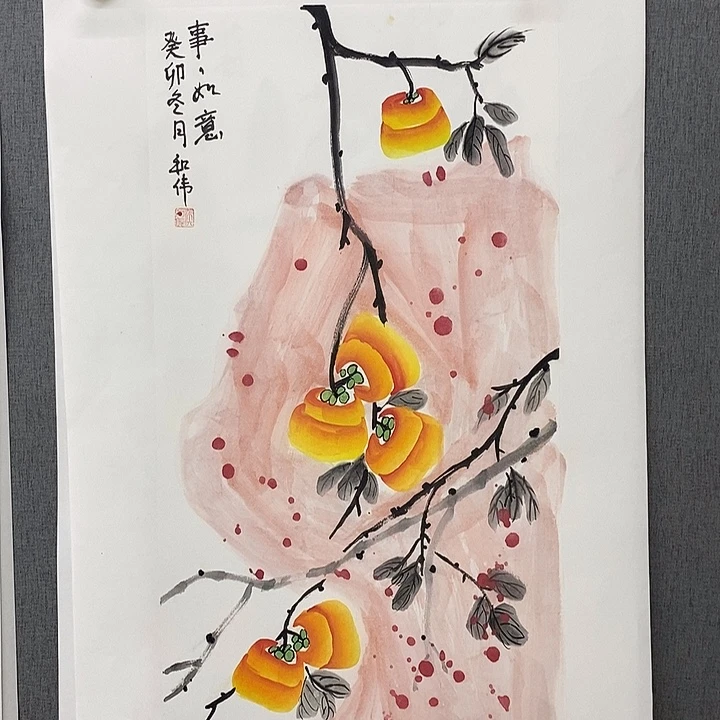 事、如意
癸卯冬月 和伟